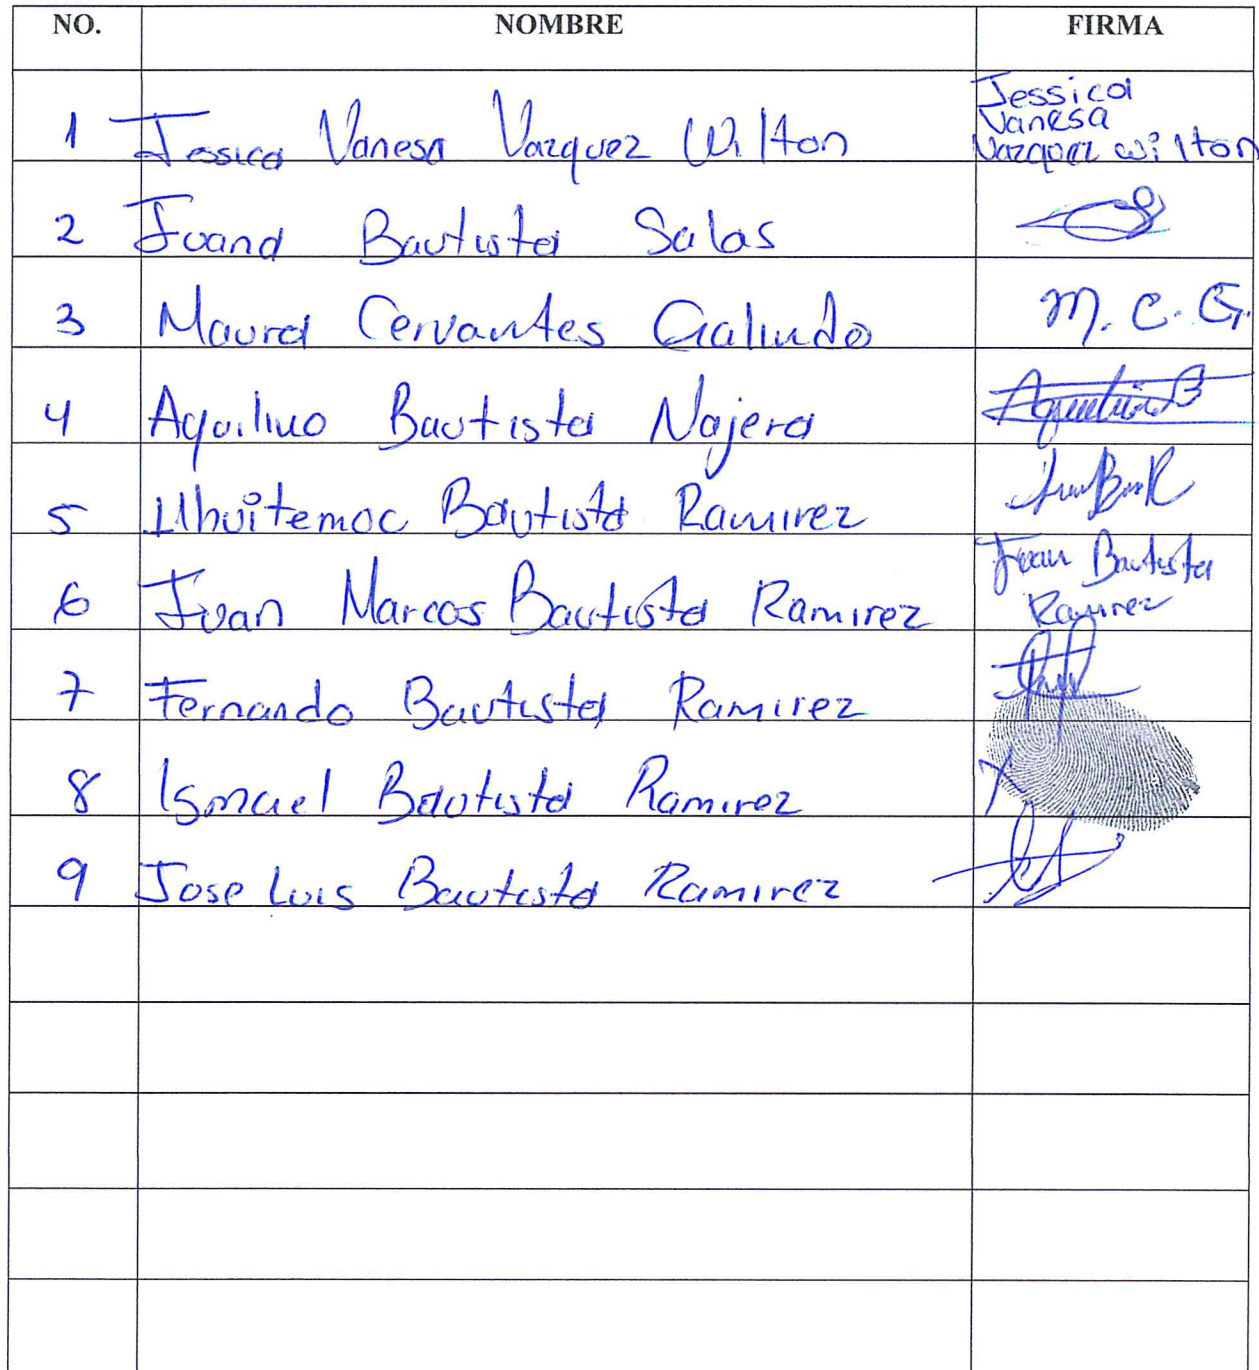 NO. NOMBRE FIRMA
1 Jessica Vanesa Vazquez Wilton Jessica
Vanesa
Vazquez wilton
2 Juana Bautista Salas
3 Maura Cervantes Galindo M. C. G.
4 Aquilino Bautista Najera
5 Bautista Ramirez
6 Juan Marcos Bautista Ramirez Juan Bautista
Ramirez
7 Fernando Bautista Ramirez
8 Ismael Bautista Ramirez X
9 Jose Luis Bautista Ramirez